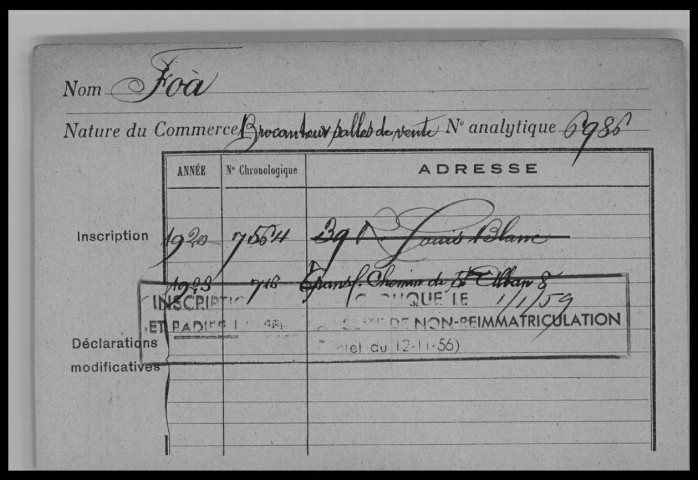 Nom Foà
Nature du Commerce Brocanteur salles de vente N° analytique 6986
ANNÉE N° Chronologique ADRESSE
Inscription 1920 7564 39 r. Louis Blanc
1923 716 Transf. Chemin de St Alban 8
INSCRIPTION CADUQUE LE 1/1/59
ET RADIÉE NON-REIMMATRICULATION
du 12-11-56)
Déclarations
modificatives